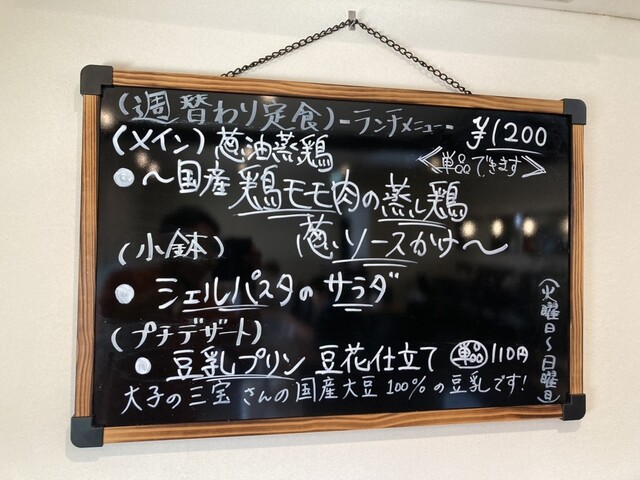 (週替わり定食)-ランチメニュー- ¥1200
(メイン) 葱油蒸鶏 <単品できます>
●〜国産鶏モモ肉の蒸し鶏
葱ソースかけ〜
(小鉢)
●シェルパスタのサラダ
(プチデザート)
●豆乳プリン 豆花仕立て 単品 110円
大子の三宝さんの国産大豆100%の豆乳です!
(火曜日〜日曜日)